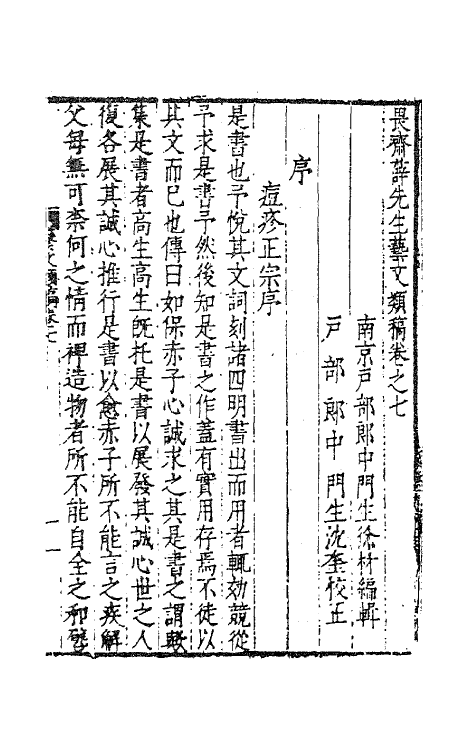 畏齋薛先生藝文類稿卷之七
南京戶部郎中門生徐材編輯
戶部郎中門生沈奎校正
序
痘疹正宗序
是書也予悅其文詞刻諸四明書出而用者輒効競從
予求是書予然後知是書之作蓋有實用存焉不徒以
其文而已也傳曰如保赤子心誠求之其是書之謂歟
集是書者高生高生旣托是書以展發其誠心世之人
復各展其誠心推行是書以愈赤子所不能言之疾解
父母無可柰何之情而裨造物者所不能自全之和譬